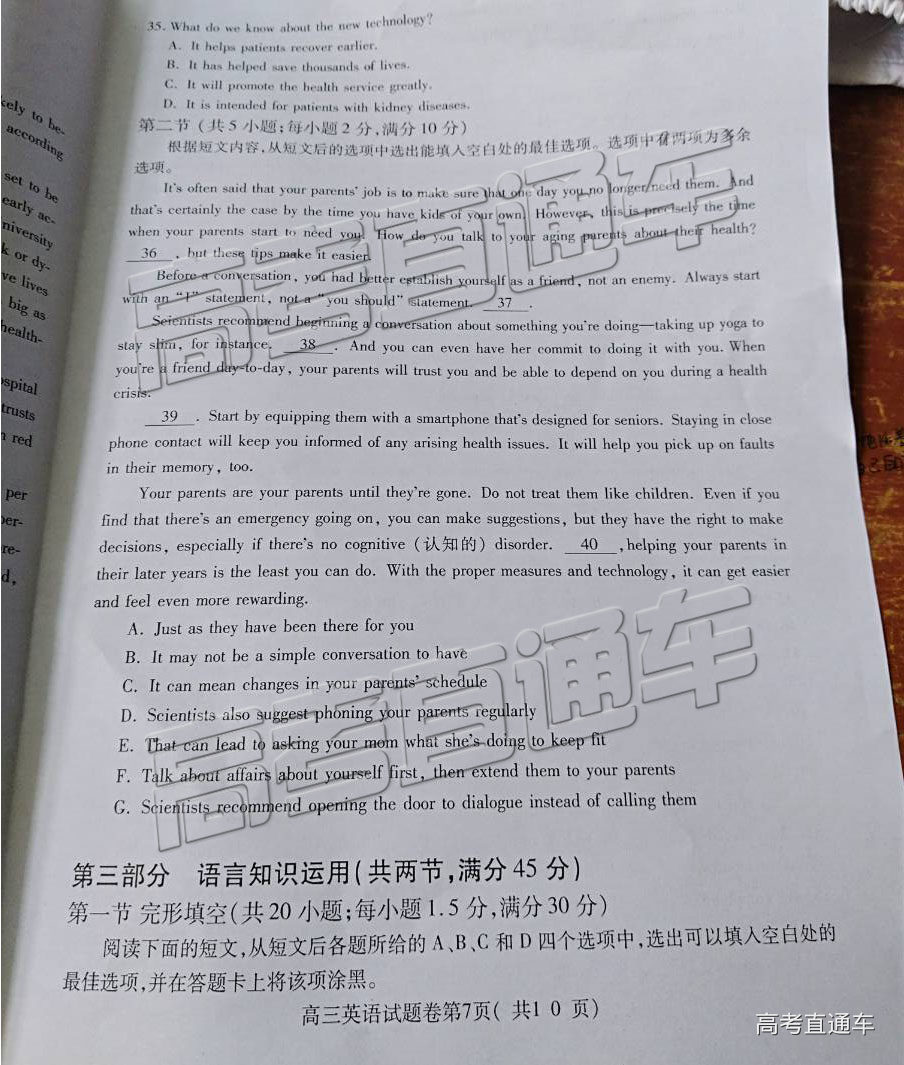 35. What do we know about the new technology?
A. It helps patients recover earlier.
B. It has helped save thousands of lives.
C. It will promote the health service greatly.
D. It is intended for patients with kidney diseases.
第二节 (共5小题;每小题2分,满分10分)
根据短文内容,从短文后的选项中选出能填入空白处的最佳选项。选项中有两项为多余
选项。
It's often said that your parents' job is to make sure that one day you no longer need them. And
that's certainly the case by the time you have kids of your own. However, this is precisely the time
when your parents start to need you! How do you talk to your aging parents about their health?
36 , but these tips make it easier.
Before a conversation, you had better establish yourself as a friend, not an enemy. Always start
with an "I" statement, not a "you should" statement. 37 .
Scientists recommend beginning a conversation about something you're doing—taking up yoga to
stay slim, for instance. 38 . And you can even have her commit to doing it with you. When
you're a friend day-to-day, your parents will trust you and be able to depend on you during a health
crisis.
39 . Start by equipping them with a smartphone that's designed for seniors. Staying in close
phone contact will keep you informed of any arising health issues. It will help you pick up on faults
in their memory, too.
Your parents are your parents until they're gone. Do not treat them like children. Even if you
find that there's an emergency going on, you can make suggestions, but they have the right to make
decisions, especially if there's no cognitive (认知的) disorder. 40 ,helping your parents in
their later years is the least you can do. With the proper measures and technology, it can get easier
and feel even more rewarding.
A. Just as they have been there for you
B. It may not be a simple conversation to have
C. It can mean changes in your parents' schedule
D. Scientists also suggest phoning your parents regularly
E. That can lead to asking your mom what she's doing to keep fit
F. Talk about affairs about yourself first, then extend them to your parents
G. Scientists recommend opening the door to dialogue instead of calling them
第三部分 语言知识运用(共两节,满分45分)
第一节 完形填空(共20小题;每小题1.5分,满分30分)
阅读下面的短文,从短文后各题所给的A、B、C和D四个选项中,选出可以填入空白处的
最佳选项,并在答题卡上将该项涂黑。
高三英语试题卷第7页( 共1 0 页)
高考直通车
高考直通车
高考直通车
kely to be-
according
set to be
early ac-
niversity
k or dy-
ve lives
big as
health-
ospital
trusts
red
per
per-
re-
d,